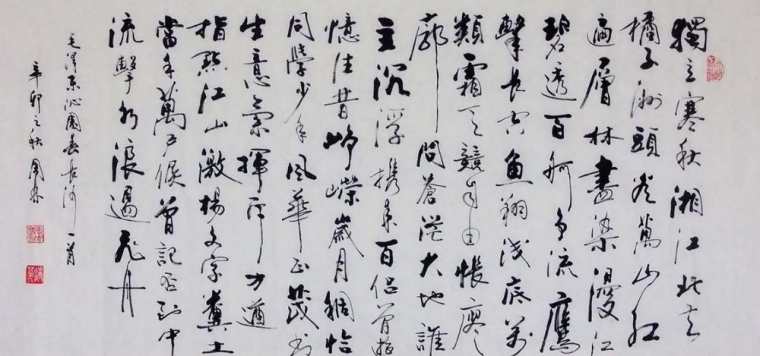 獨立寒秋湘江北去
橘子洲頭看萬山紅
遍層林盡染漫江
碧透百舸爭流鷹
擊長空魚翔淺底萬
類霜天競自由悵寥
廓問蒼茫大地誰
主沉浮攜來百侶曾遊
憶往昔崢嶸歲月稠恰
同學少年風華正茂書
生意氣揮斥方遒
指點江山激揚文字糞土
當年萬戶侯曾記否到中
流擊水浪遏飛舟
毛澤東沁園春長沙一首
辛卯之秋周